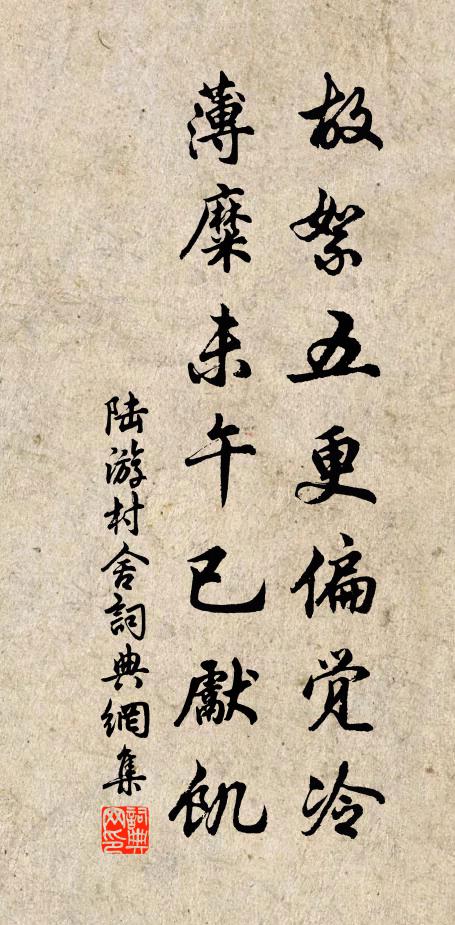 故絮五更偏觉冷
薄糜未午已献飢
陆游村舍詞典網集
詞典网印